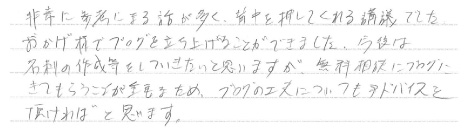 非常に参考になる話が多く、背中を押してくれる講議でした
おかげ様でブログを立ち上げることができました。今後は
名刺の作成等をしていきたいと思いますが、無料相談にブログに
きてもらうことが重要なため、ブログの工夫についてもアドバイスを
頂ければと思います。